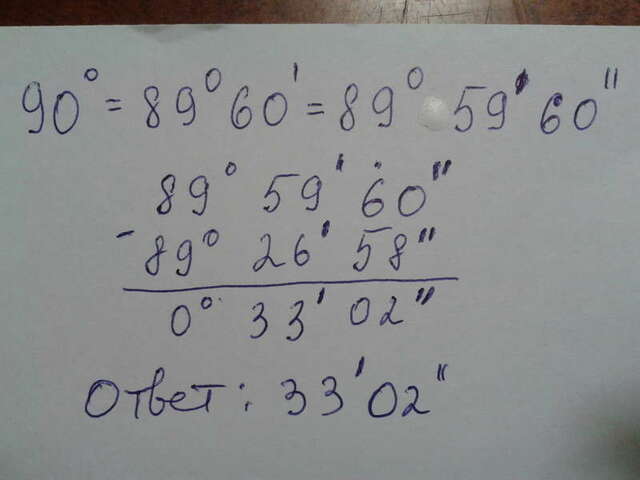 90° = 89° 60' = 89° 59' 60"
89° 59' 60"
- 89° 26' 58"
0° 33' 02"
Ответ: 33' 02"